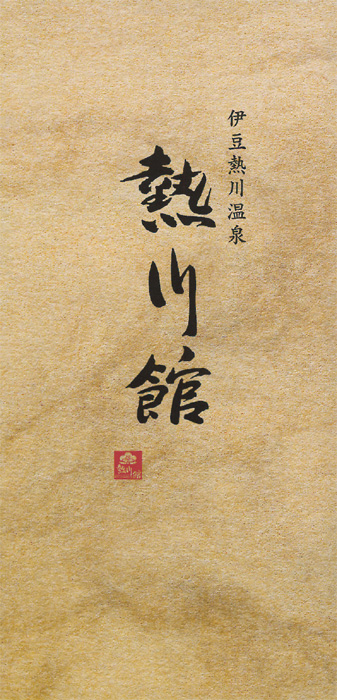 伊豆熱川温泉
熱川館
熱川館